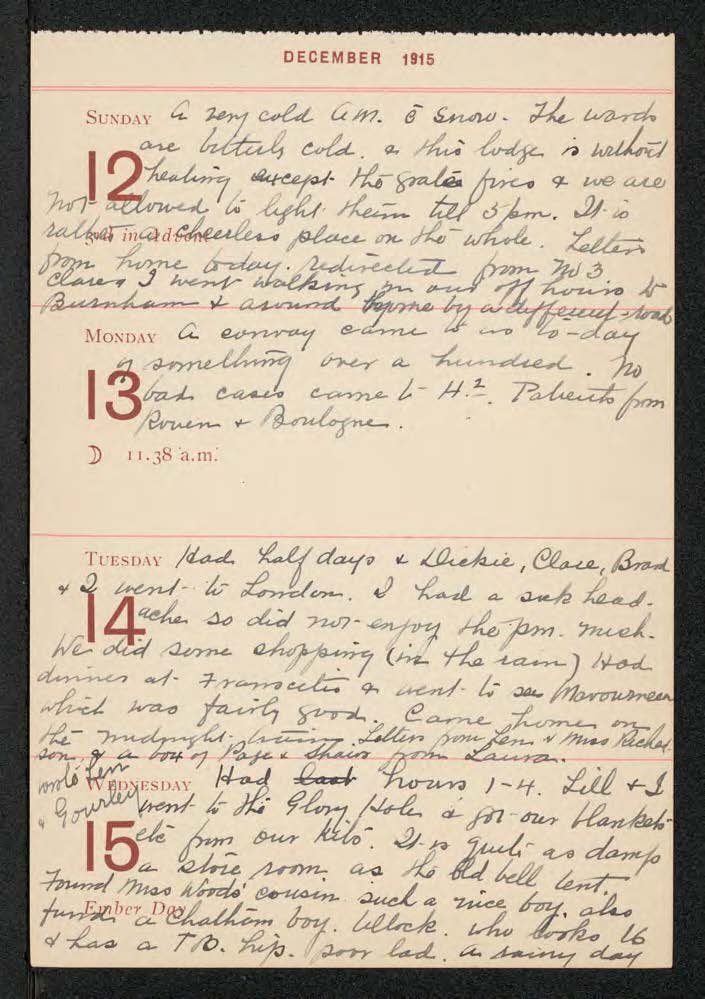 DECEMBER 1915
SUNDAY A very cold A.M. c̄ snow. The wards
are bitterly cold. & this lodge is without
12 heating except the grates fires & we are
not allowed to light them till 5 pm. It is
rather a cheerless place on the whole. Letters
3rd in Advent
from home today. redirected from No 3
Clare & I went walking in our off hours to
Burnham & around home by a different road
MONDAY A convoy came to us to-day
of something over a hundred. No
13 bad cases came to H.2. Patients from
Rouen & Boulogne.
☽ 11.38 a.m.
TUESDAY Had half days & Dickie, Clare, Brand
& I went to London. I had a sick head-
14 ache so did not enjoy the pm. much.
We did some shopping (in the rain) Had
dinner at & went to see Mavourneen
which was fairly good. Came home on
the midnight train. Letters from Len & Miss Richard
son, & a box of Page & Shaws from Laura.
wrote Len
& Gourley
WEDNESDAY Had last hours 1-4. Lill & I
went to the Glory Hole & got our blankets
15 etc from our kits. It is quite as damp
a store room. as the old bell tent.
Found Miss Woods' cousin such a nice boy. also
Ember Day
found a Chatham boy. who looks 16
& has a T.B. hip. poor lad. A rainy day